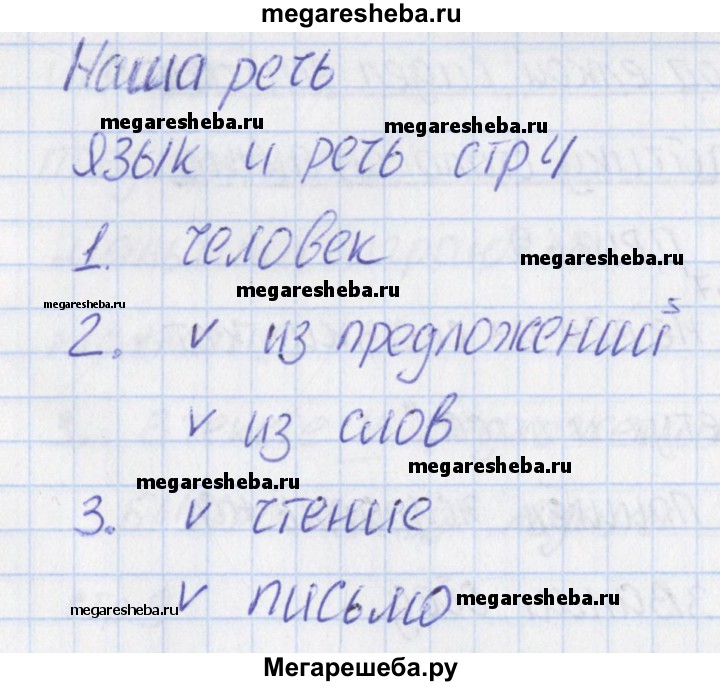 megaresheba.ru
Наша речь
megaresheba.ru
megaresheba.ru
Язык и речь стр 4
1. человек
megaresheba.ru
megaresheba.ru
megaresheba.ru
2. v из предложений
v из слов
megaresheba.ru
megaresheba.ru
3. v чтение
v письмо
megaresheba.ru
megaresheba.ru
Мегарешеба.ру